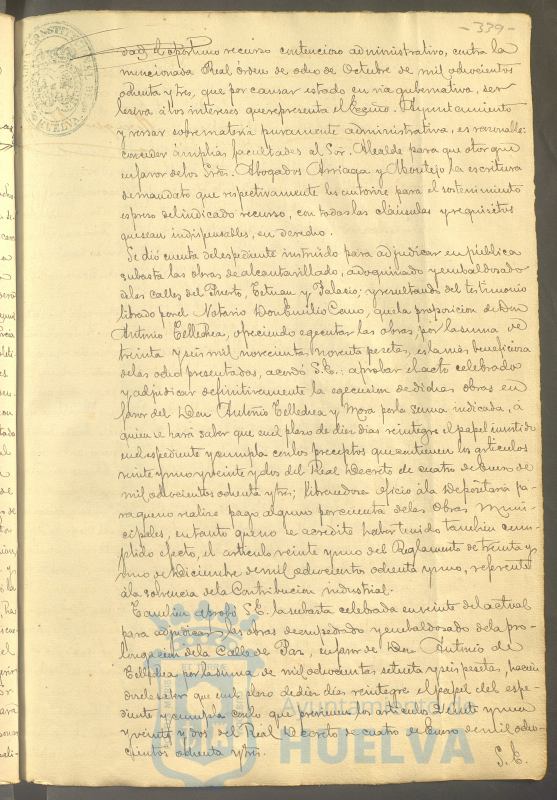 -339-
dad el oportuno recurso contencioso administrativo, contra la
mencionada Real órden de ocho de Octubre de mil ochocientos
ochenta y tres, que por causar estado en via gubernativa, ser
lesiva á los intereses que representa el Ayuntamiento
y versar sobre materia puramente administrativa, es razonable:
conceder ámplias facultades al Sor. Alcalde para que otorgue
en favor de los Sres. Abogados Arriaga y la escritura
de mandato que respectivamente les autorice para el sostenimiento
espreso del indicado recurso, con todas las cláusulas y requisitos
que sean indispensables, en derecho.
Se dió cuenta del espediente instruido para adjudicar en pública
subasta las obras de alcantarillado, adoquinado y embaldosado
de las calles del Puerto, Tetuan y Palacio; y resultando del testimonio
librado por el Notario Don Emilio Cano, que la proposicion de Don
Antonio Tellechea, ofreciendo egecutar las obras, por la suma de
treinta y seis mil novecientas noventa pesetas, es la más beneficiosa
de las ocho presentadas, acordó S.E.: aprobar el acto celebrado
y adjudicar definitivamente la egecucion de dichas obras en
favor del Don Antonio Tellechea y Mora por la suma indicada, á
quien se hará saber que en el plazo de diez dias reintegre el papel invertido
en el espediente y cumpla con los preceptos que contienen los artículos
veinte y uno y veinte y dos del Real Decreto de cuatro de Enero de
mil ochocientos ochenta y tres; librandose oficio á la Depositaria pa-
ra que no realize pago alguno por cuenta de las Obras Muni-
cipales, en tanto que no se acredite haber tenido tambien cum-
plido efecto, el artículo veinte y uno del Reglamento de treinta y
uno de Diciembre de mil ochocientos ochenta y uno, referente
á la solvencia de la Contribucion industrial.
Tambien aprobó S.E. la subasta celebrada en veinte del actual
para adjudicar las obras de empedrado y embaldosado de la pro-
longacion de la Calle de Paz, en favor de Don Antonio de
Tellechea por la suma de mil ochocientas setenta y seis pesetas, hacien-
dosele saber que en el plazo de diez dias reintegre el papel del espe-
diente y cumpla con lo que previenen los artículos veinte y uno
y veinte y dos del Real Decreto de cuatro de Enero de mil ocho-
cientos ochenta y tres.
S.E.
HUELVA
Ayuntamiento de
HUELVA